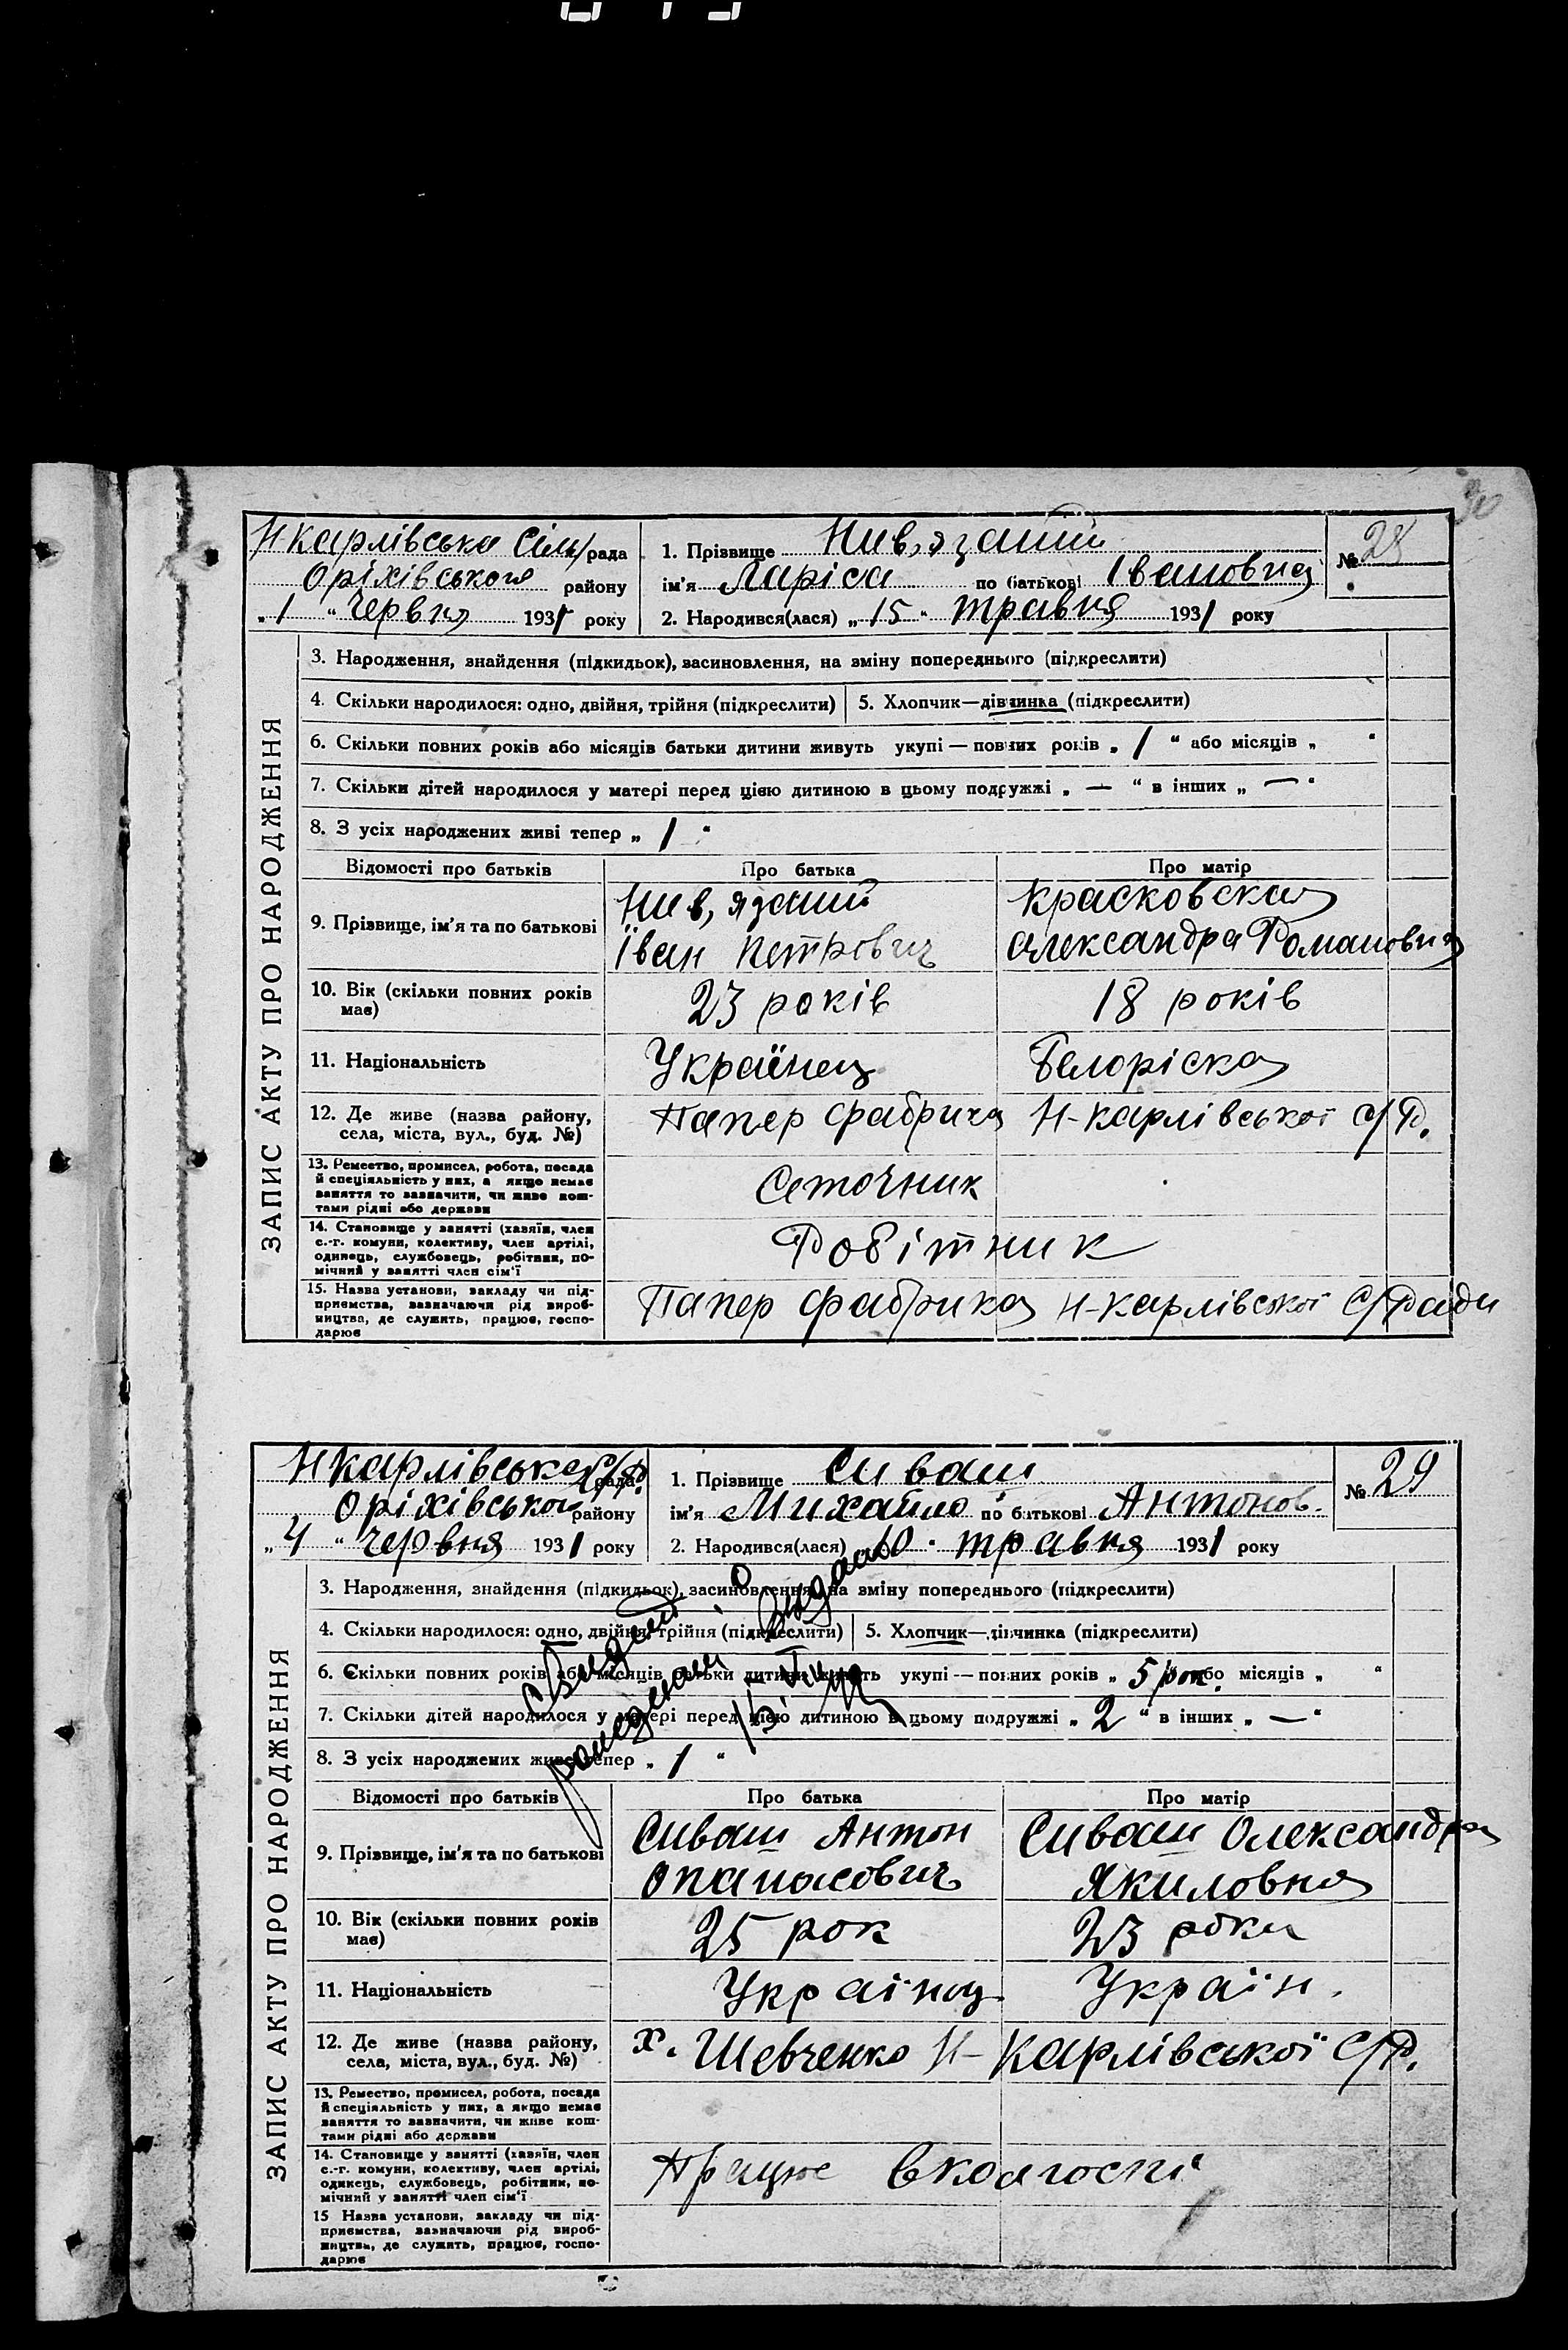 30
Нкарлівська Сіль/рада
Оріхівського району
„1“ Червня 1931 року
1. Прізвище Нив,язаний
ім'я Ларіса по батькові Івановна
2. Народився(лася) „15“ травня 1931 року
№ 28
ЗАПИС АКТУ ПРО НАРОДЖЕННЯ
3. Народження, знайдення (підкидьок), засиновлення, на зміну попереднього (підкреслити)
4. Скільки народилося: одно, двійня, трійня (підкреслити) 5. Хлопчик—дівчинка (підкреслити)
6. Скільки повних років або місяців батьки дитини живуть укупі — повних років „ 1 “ або місяців „ “
7. Скільки дітей народилося у матері перед цією дитиною в цьому подружжі „ — “ в інших „ — “
8. З усіх народжених живі тепер „ 1 “
Відомості про батьків Про батька Про матір
9. Прізвище, ім'я та по батькові
Нив,язаний
Іван Петрович
Красковская
Александра Романовна
10. Вік (скільки повних років має)
23 років
18 років
11. Національність
Українец
Белоріска
12. Де живе (назва району, села, міста, вул., буд. №)
Папер фабрика Н-Карлівської С/Р.
13. Ремество, промисел, робота, посада й спеціяльність у них, а якщо немає заняття то зазначити, чи живе коштами рідні або держави
Сеточник
14. Становище у занятті (хазяїн, член с.-г. комуни, колективу, член артілі, одинець, службовець, робітник, помічний у занятті член сім'ї
Робітник
15. Назва установи, закладу чи підприємства, зазначаючи рід виробництва, де служить, працює, господарює
Папер фабрика Н-Карлівської С/Ради
Нкарлівська С/Р. рада
Оріхівського району
„4“ Червня 1931 року
1. Прізвище Сиваш
ім'я Михайло по батькові Антонов.
2. Народився(лася) 10 травня 1931 року
№ 29
ЗАПИС АКТУ ПРО НАРОДЖЕННЯ
3. Народження, знайдення (підкидьок), засиновлення, на зміну попереднього (підкреслити)
4. Скільки народилося: одно, двійня, трійня (підкреслити) 5. Хлопчик—дівчинка (підкреслити)
6. Скільки повних років або місяців батьки дитини живуть укупі — повних років „ 5 рок. “ або місяців „ “
7. Скільки дітей народилося у матері перед цією дитиною в цьому подружжі „ 2 “ в інших „ — “
8. З усіх народжених живі тепер „ 1 “
Відомості про батьків Про батька Про матір
9. Прізвище, ім'я та по батькові
Сиваш Антон
Опанасович
Сиваш Олександра
Якиловна
10. Вік (скільки повних років має)
25 рок
23 роки
11. Національність
Українц
Україн.
12. Де живе (назва району, села, міста, вул., буд. №)
х. Шевченко Н-Карлівської С/Р.
13. Ремество, промисел, робота, посада й спеціяльність у них, а якщо немає заняття то зазначити, чи живе коштами рідні або держави
14. Становище у занятті (хазяїн, член с.-г. комуни, колективу, член артілі, одинець, службовець, робітник, помічний у занятті член сім'ї
Працює вколгоспі
15 Назва установи, закладу чи підприємства, зазначаючи рід виробництва, де служить, працює, господарює